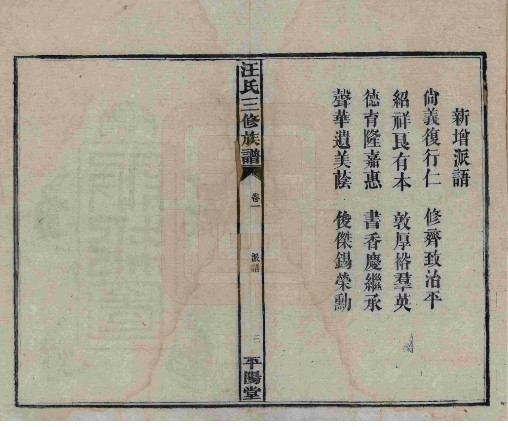 新增派語
尙義復行仁 修齊致治平
紹祥良有本 敦厚裕羣英
德育隆嘉惠 書香慶繼承
聲華遺美蔭 俊傑錫榮勳
汪氏三修族譜 卷一 派語 平陽堂